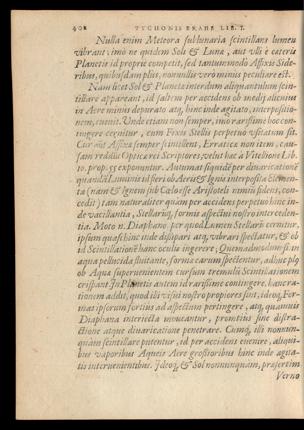 408 TYCHONIS BRAHE LIB. I.
Nulla enim Meteora sublunaria scintillans lumen
vibrant: imò ne quidem Soli & Lunæ, aut vlli è cæteris
Planetis id propriè competit, sed tantummodò Affixis Side-
ribus, quibusdam plus, nonnullis verò minus peculiare est.
Nam licet Sol & Planetæ interdum aliquantulum scin-
tillare appareant, id saltem per accidens ob medij alienius
in Aere minus depurato atq; hinc inde agitato, interpositio-
nem, euenit. Vnde etiam non semper, imò rarissimè hoc con-
tingere cernitur, cum Fixis Stellis perpetuò vsitatum sit.
Cur aūt Affixæ semper scintillent, Erraticæ non item, cau-
sam reddunt Opticæ rei Scriptores, velut hæc à Vitellione Lib.
10. prop. 55 exponuntur. Autumat siquidem diuaricationē
quandā Luminis id fieri ob Aeris & Ignis interposita Elemen-
ta (nam & Ignem sub Cælo esse Aristoteli nimiū fidens, con-
cedit) tam naturaliter quàm per accidens perpetuò hinc in-
de vacillantia, Stellarūq; formis aspectui nostro interceden-
tia. Moto n. Diaphano, per quod Lumen Stellarū cernitur,
ipsum quasi hinc inde dissipari atq; vibrari spectatur, & ob
id Scintillationē hanc oculis ingerere. Quemadmodum si in
aqua pellucida fluitante, formæ earum spectentur, adhuc plꝯ
ob Aquæ superuenientem cursum tremulū Scintillationem
crispant. In Planetis autem id rarissimè contingere, hanc ra-
tionem addit, quod illi visui nostro propiores sint, ideoq; For-
mas ipsorum fortius ad aspectum pertingere, atq; quamuis
Diaphana interiecta moueantur, promtius sine distra-
ctione atque diuaricatione penetrare. Cumq; illi nonnun-
quàm scintillare putentur, id per accidens euenire, aliqui-
bus vaporibus Aqueis Aere grossioribus hinc inde agita-
tis interuenientibus. Ideoq; & Sol nonnunquàm, præsertim
Verno